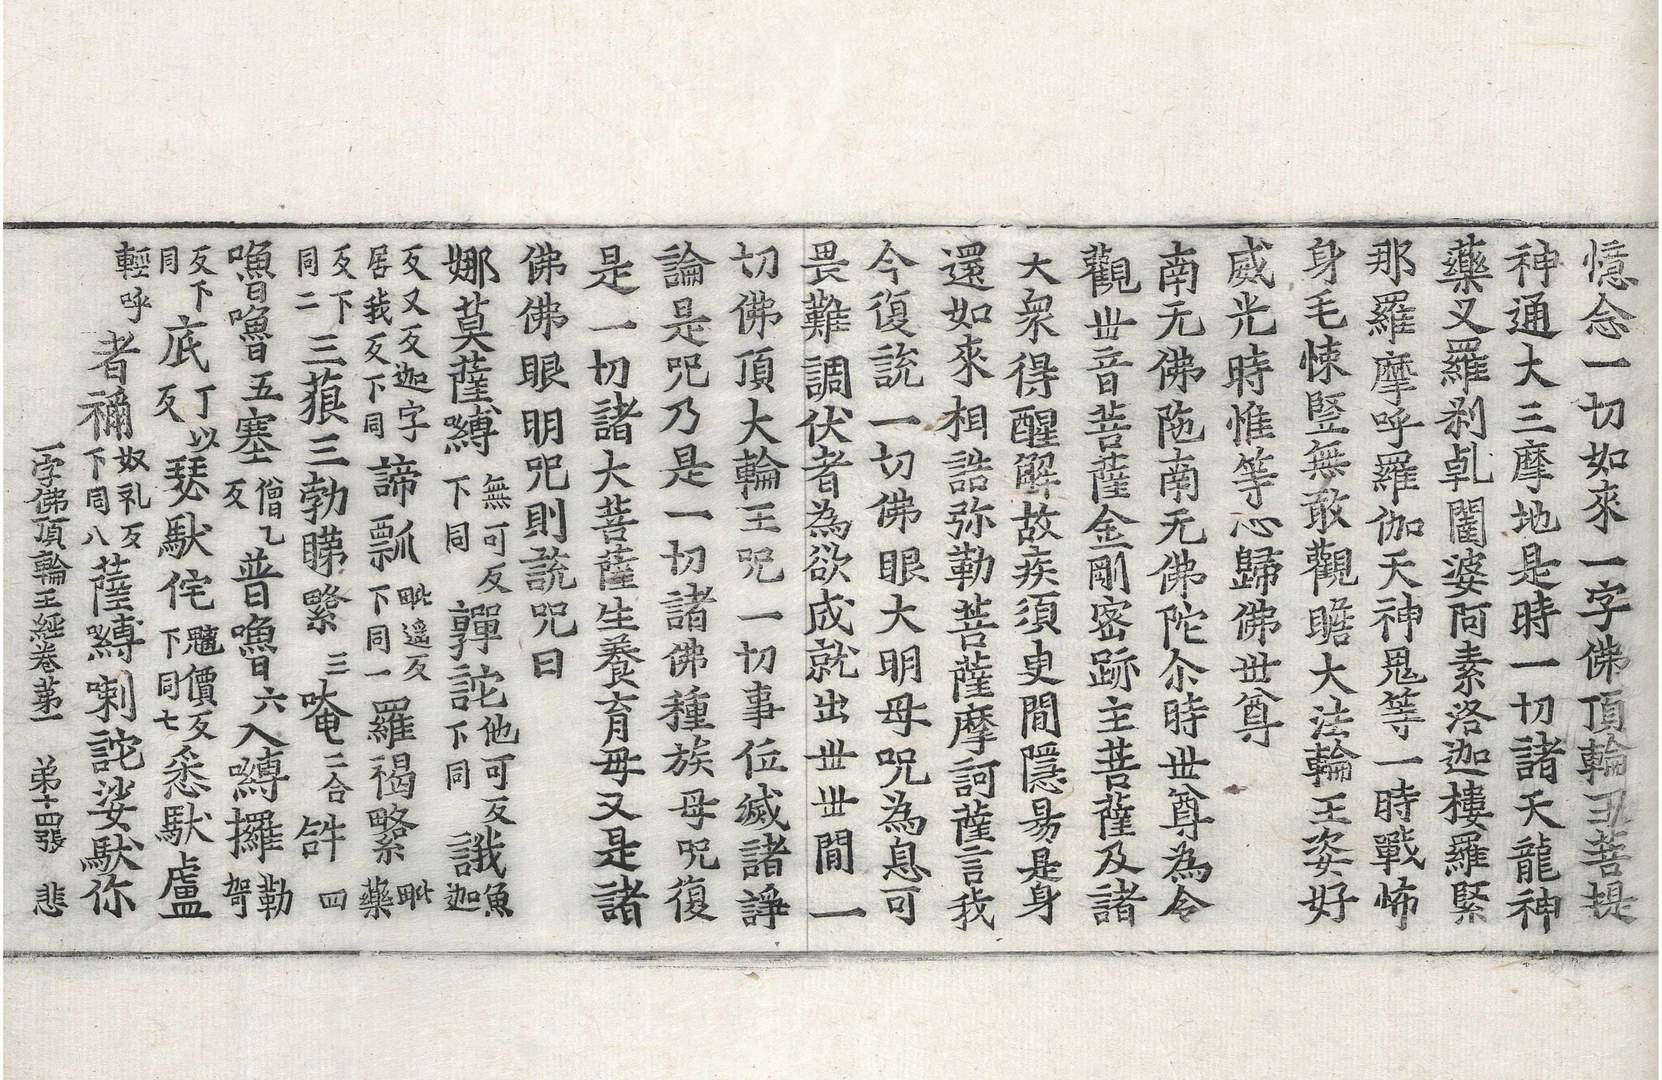 憶念一切如來一字佛頂輪王菩提
神通大三摩地是時一切諸天龍神
藥叉羅剎乹闥婆阿素洛迦樓羅緊
那羅摩呼羅伽天神鬼等一時戰怖
身毛悚竪無敢觀瞻大法輪王姿好
威光時惟等心歸佛世尊
南无佛陁南无佛陀尒時世尊為令
觀世音菩薩金剛密跡主菩薩及諸
大衆得醒解故疾須臾間隱昜是身
還如來相誥弥勒菩薩摩訶薩言我
今復說一切佛眼大明母呪為息可
畏難調伏者為欲成就出世世間一
切佛頂大輪王呪一切事位滅諸諍
論是呪乃是一切諸佛種族母呪復
是一切諸大菩薩生養育母又是諸
佛佛眼明呪則說呪曰
娜莫薩嚩無可反下同嚲詑他可反下同誐魚迦
反又反迦字居我反下同諦瓢毗遥反下同一羅褐畧藥毗
反下同二三藐三勃睇繄三唵二合䛕四
嚕嚕五塞僧乙反普嚕六入嚩攞勒哿
反下同底丁以反瑟馱侘魑價反下同七悉馱盧
輕呼者禰奴礼反下同八薩嚩喇詑娑馱你
一字佛頂輪王經卷苐一　弟十四張　悲